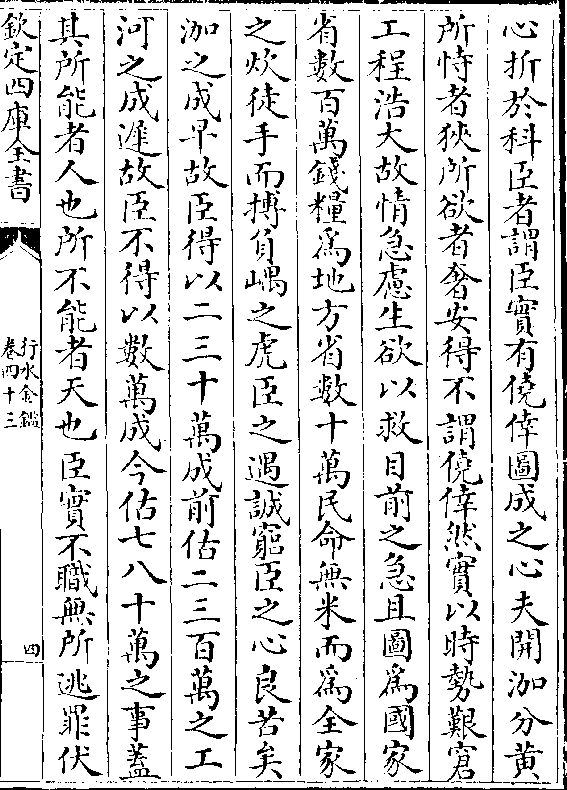 心折於科臣者謂臣實有僥倖圖成之心夫開泇分黄
所恃者狹所欲者奢安得不謂僥倖然實以時勢艱窘
工程浩大故情急慮生欲以救目前之急且圖為國家
省數百萬錢糧為地方省數十萬民命無米而為全家
之炊徒手而搏負嵎之虎臣之遇誠窮臣之心良苦矣
泇之成早故臣得以二三十萬成前估二三百萬之工
河之成遲故臣不得以數萬成今估七八十萬之事蓋
其所能者人也所不能者天也臣實不職無所逃罪伏
欽定四庫全書
行水金鑑
卷四十三
四